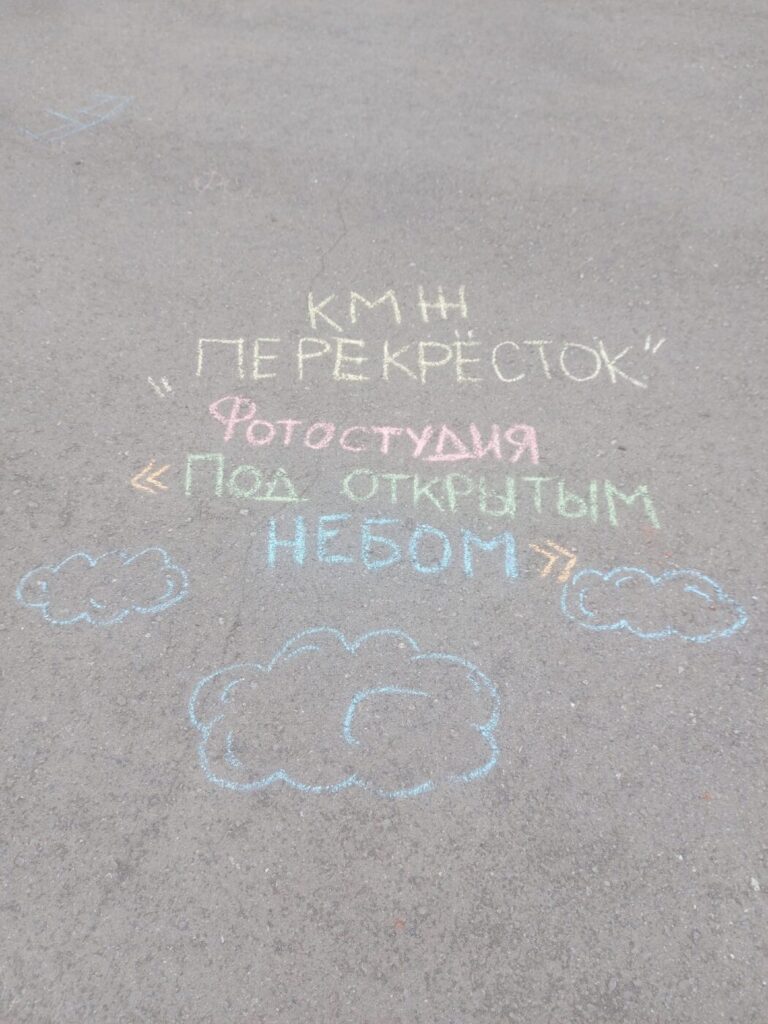 КМЖ
„ПЕРЕКРЁСТОК"
Фотостудия
«Под открытым
НЕБОМ»